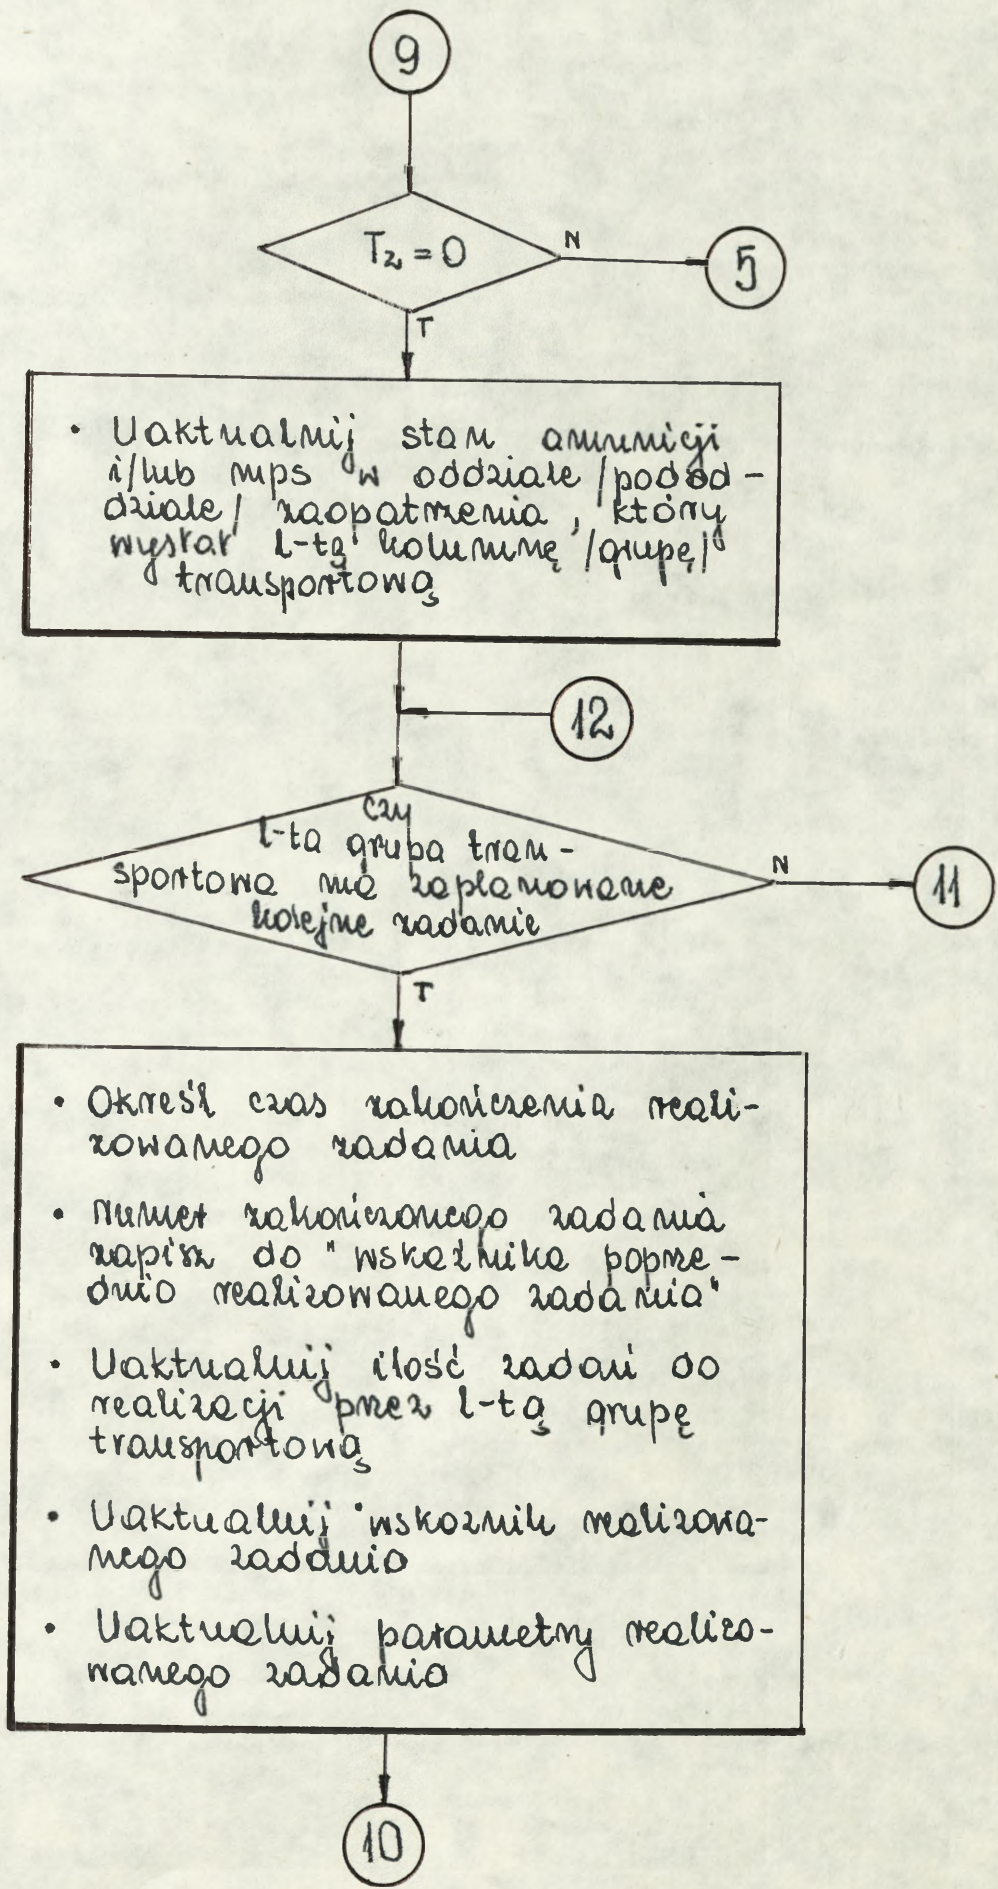 9
T₂ = 0
N
5
T
• Uaktualnij stan amunicji
i/lub mps w oddziale /podod-
dziale/ zaopatrzenia, który
wysłał l-tą kolumnę /grupę/
transportową
12
czy
l-ta grupa tran-
sportowa ma zaplanowane
kolejne zadanie
N
11
T
• Określ czas zakończenia reali-
zowanego zadania
• Numer zakończonego zadania
zapisz do "wskaźnika poprze-
dnio realizowanego zadania"
• Uaktualnij ilość zadań do
realizacji przez l-tą grupę
transportową
• Uaktualnij "wskaźnik realizowa-
nego zadania
• Uaktualnij parametry realizo-
wanego zadania
10